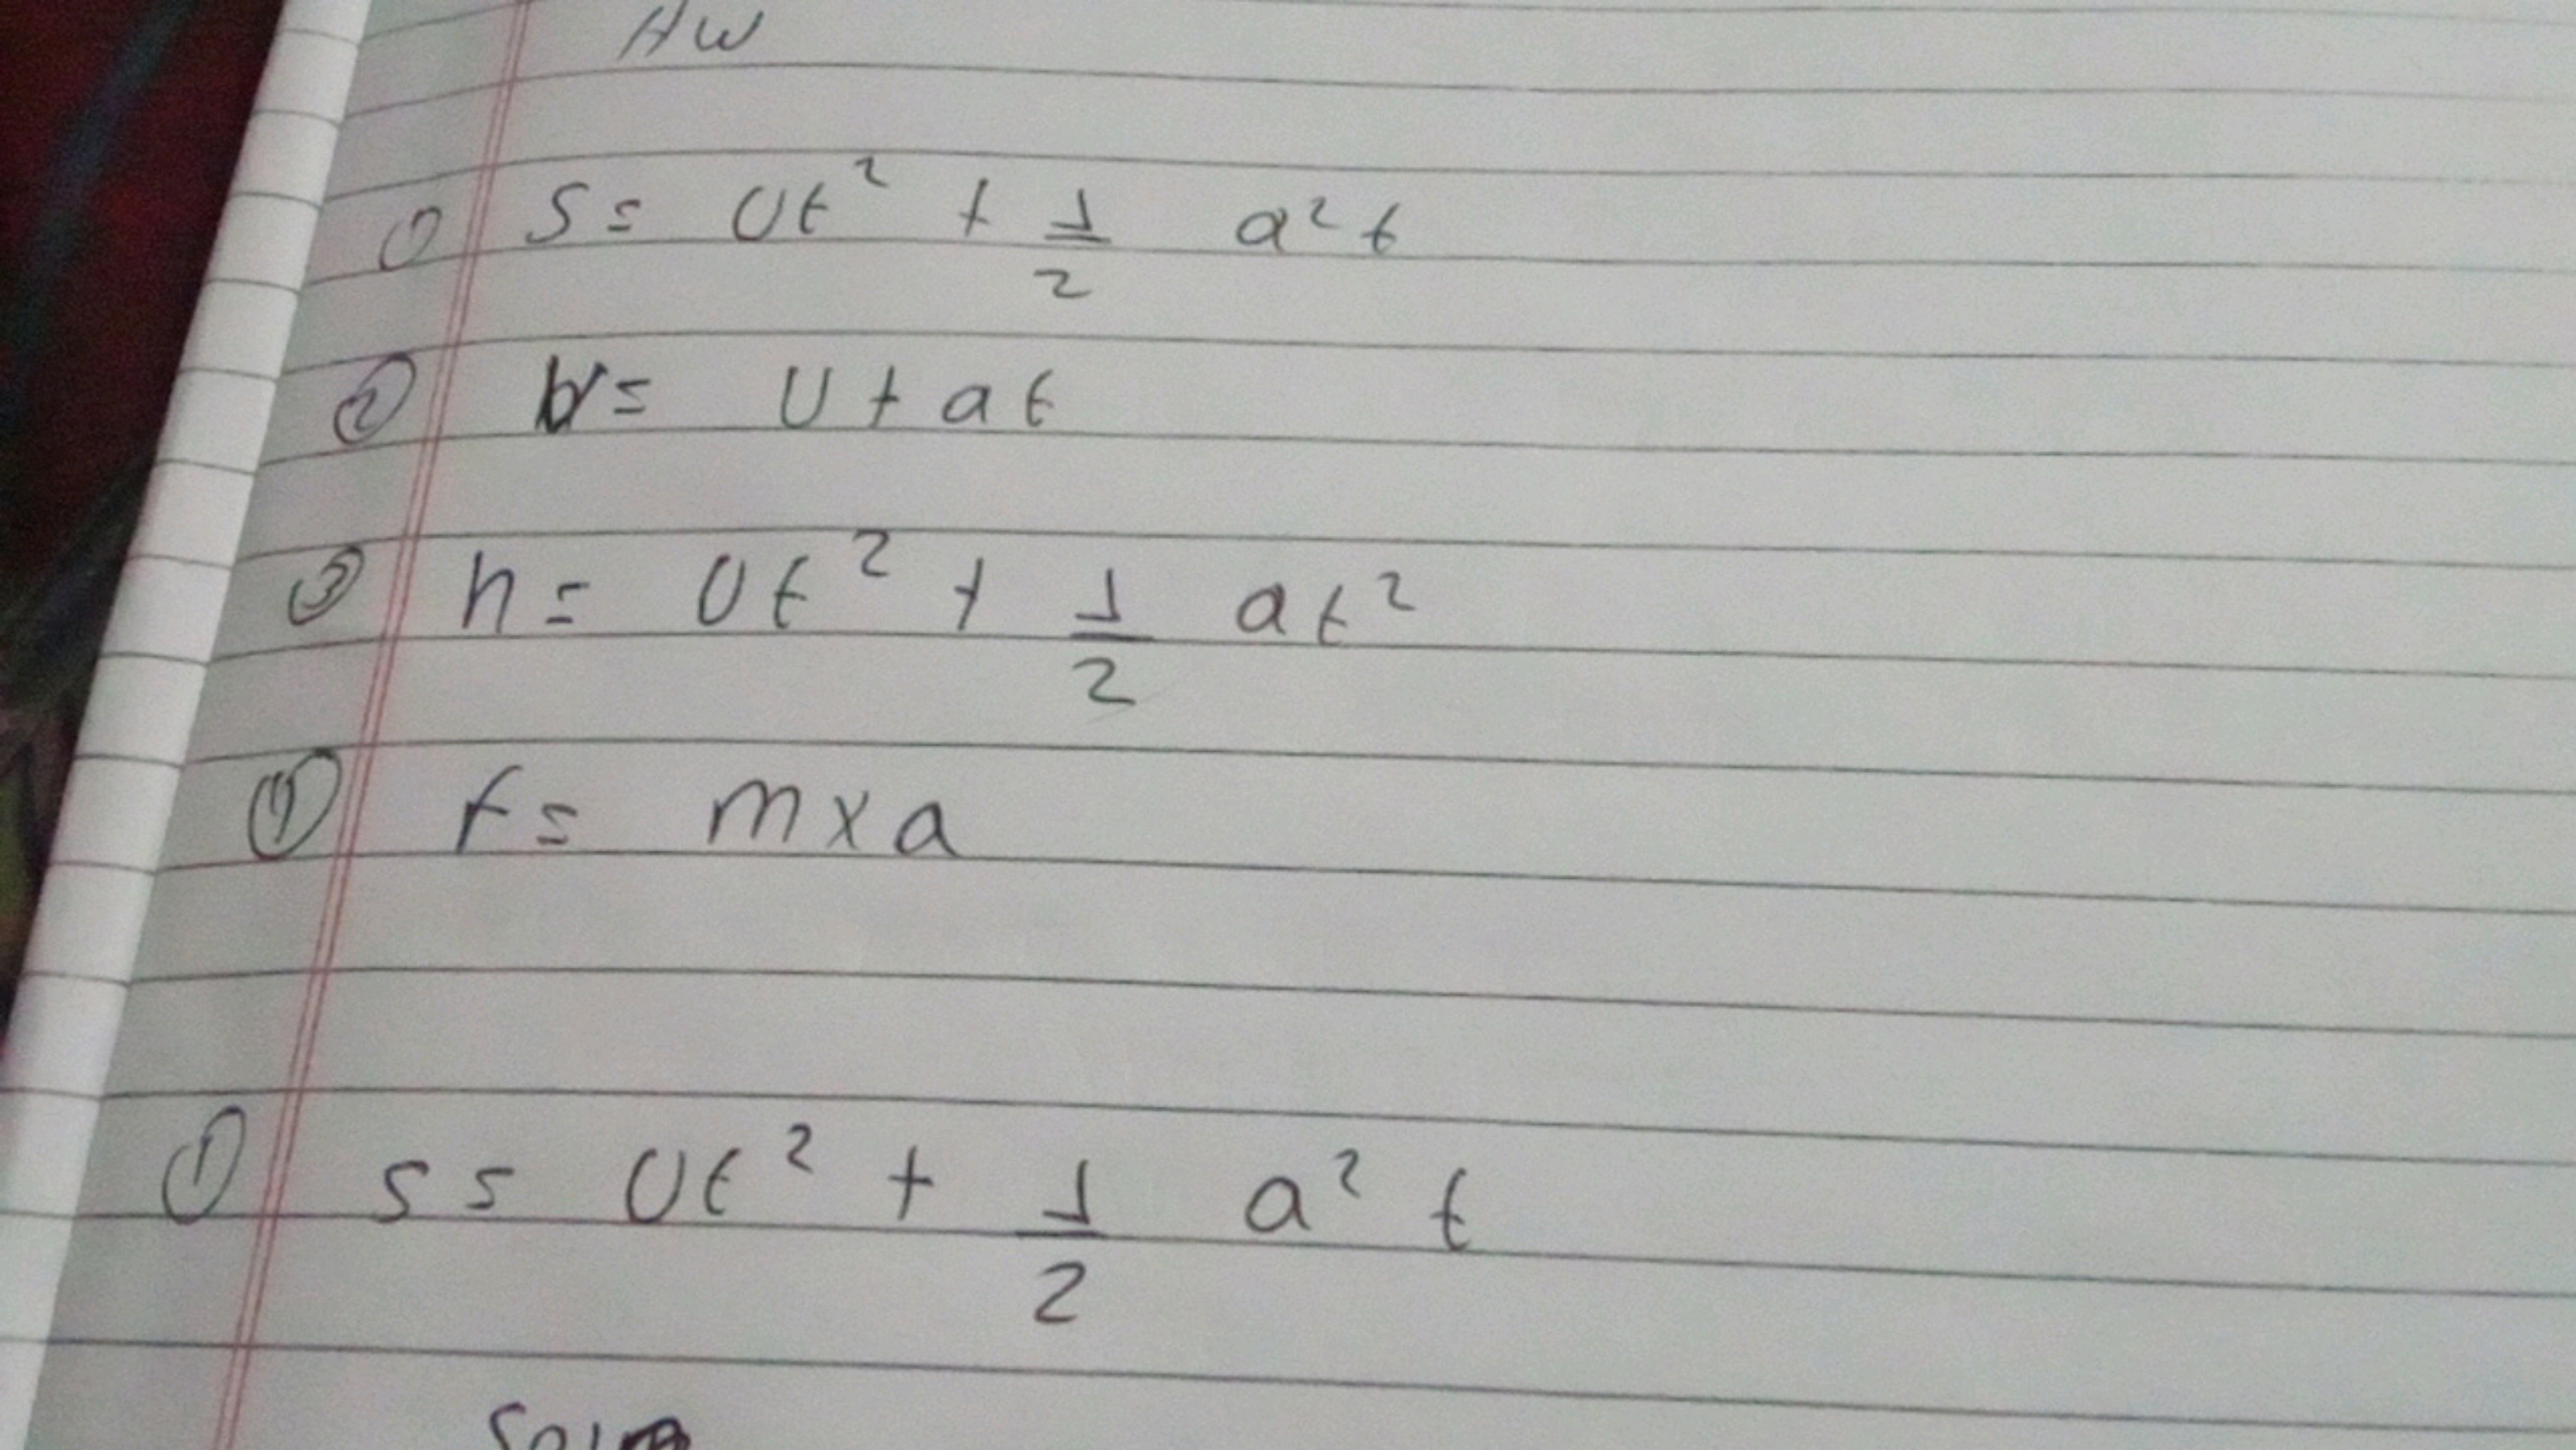 HW
① S = Ut² + 1/2 a²t
② V = U + at
③ h = Ut² + 1/2 at²
④ f = m x a
① s = Ut² + 1/2 a² t